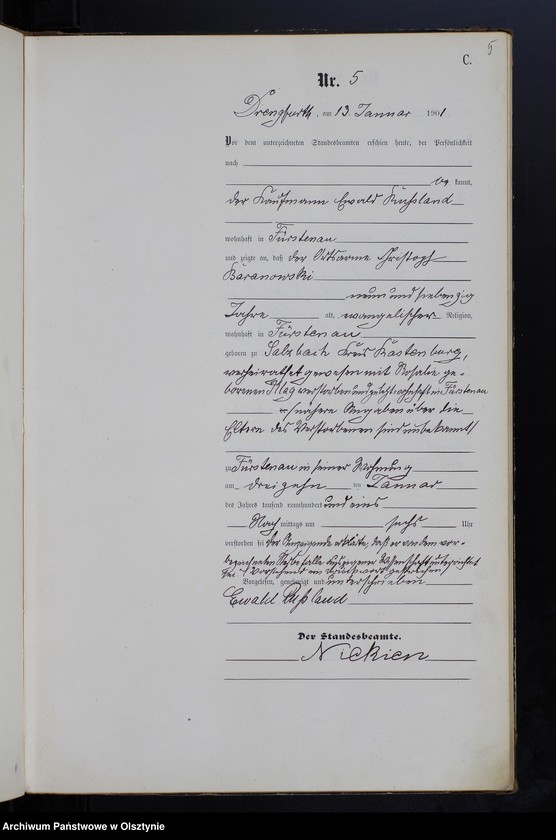 5
C.
Nr. 5
Drengfurth, am 13. Januar 1901
Vor dem unterzeichneten Standesbeamten erschien heute, der Persönlichkeit
nach
kannt,
der Kaufmann Ewald Rußland
wohnhaft in Fürstenau
und zeigte an, daß der Ortsarme Christoph
Baranowski
neun und siebenzig
Jahre alt, evangelischer Religion,
wohnhaft in Fürstenau
geboren zu Salzbach Kreis Rastenburg,
verheirathet gewesen mit Rosalie ge-
borenen verstorben und zuletzt wohnhaft in Fürstenau
/nähere Angaben über die
Eltern des Verstorbenen sind unbekannt/
zu Fürstenau in seiner Wohnung
am dreizehn ten Januar
des Jahres tausend neunhundert und eins
Nach mittags um sechs Uhr
verstorben sei Der Anzeigende erklärte, daß er von dem vor-
bezeichneten Sterbefalle aus eigener Wissenschaft unterrichtet
sei. / Vorstehend ein Druckwort gestrichen/
Vorgelesen, genehmigt und unterschrieben
Ewald Rußland
Der Standesbeamte.
Nickien
Archiwum Państwowe w Olsztynie